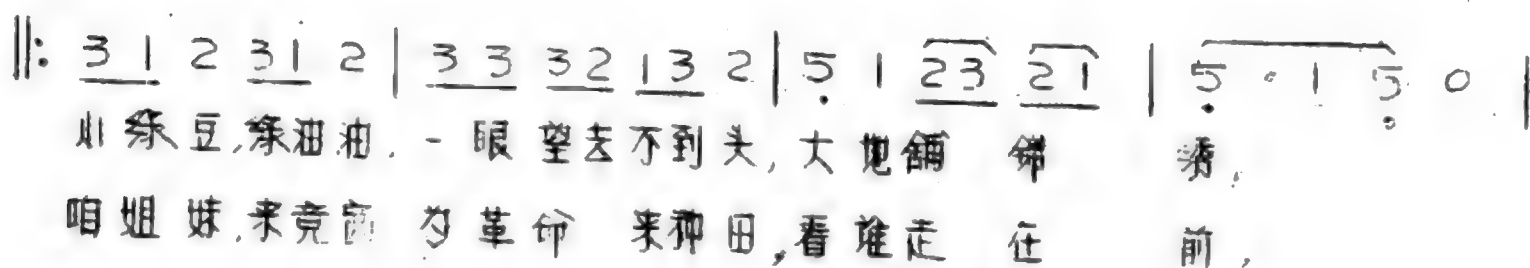 ‖: 3 1 2 3 1 2 | 3 3 3 2 1 3 2 | 5 1 2 3 2 1 | 5 · 1 5 0 |
小绿豆,绿油油,一眼望去不到头,大地铺锦绣,
咱姐妹,来竞赛 为革命 来种田,看谁走在前,